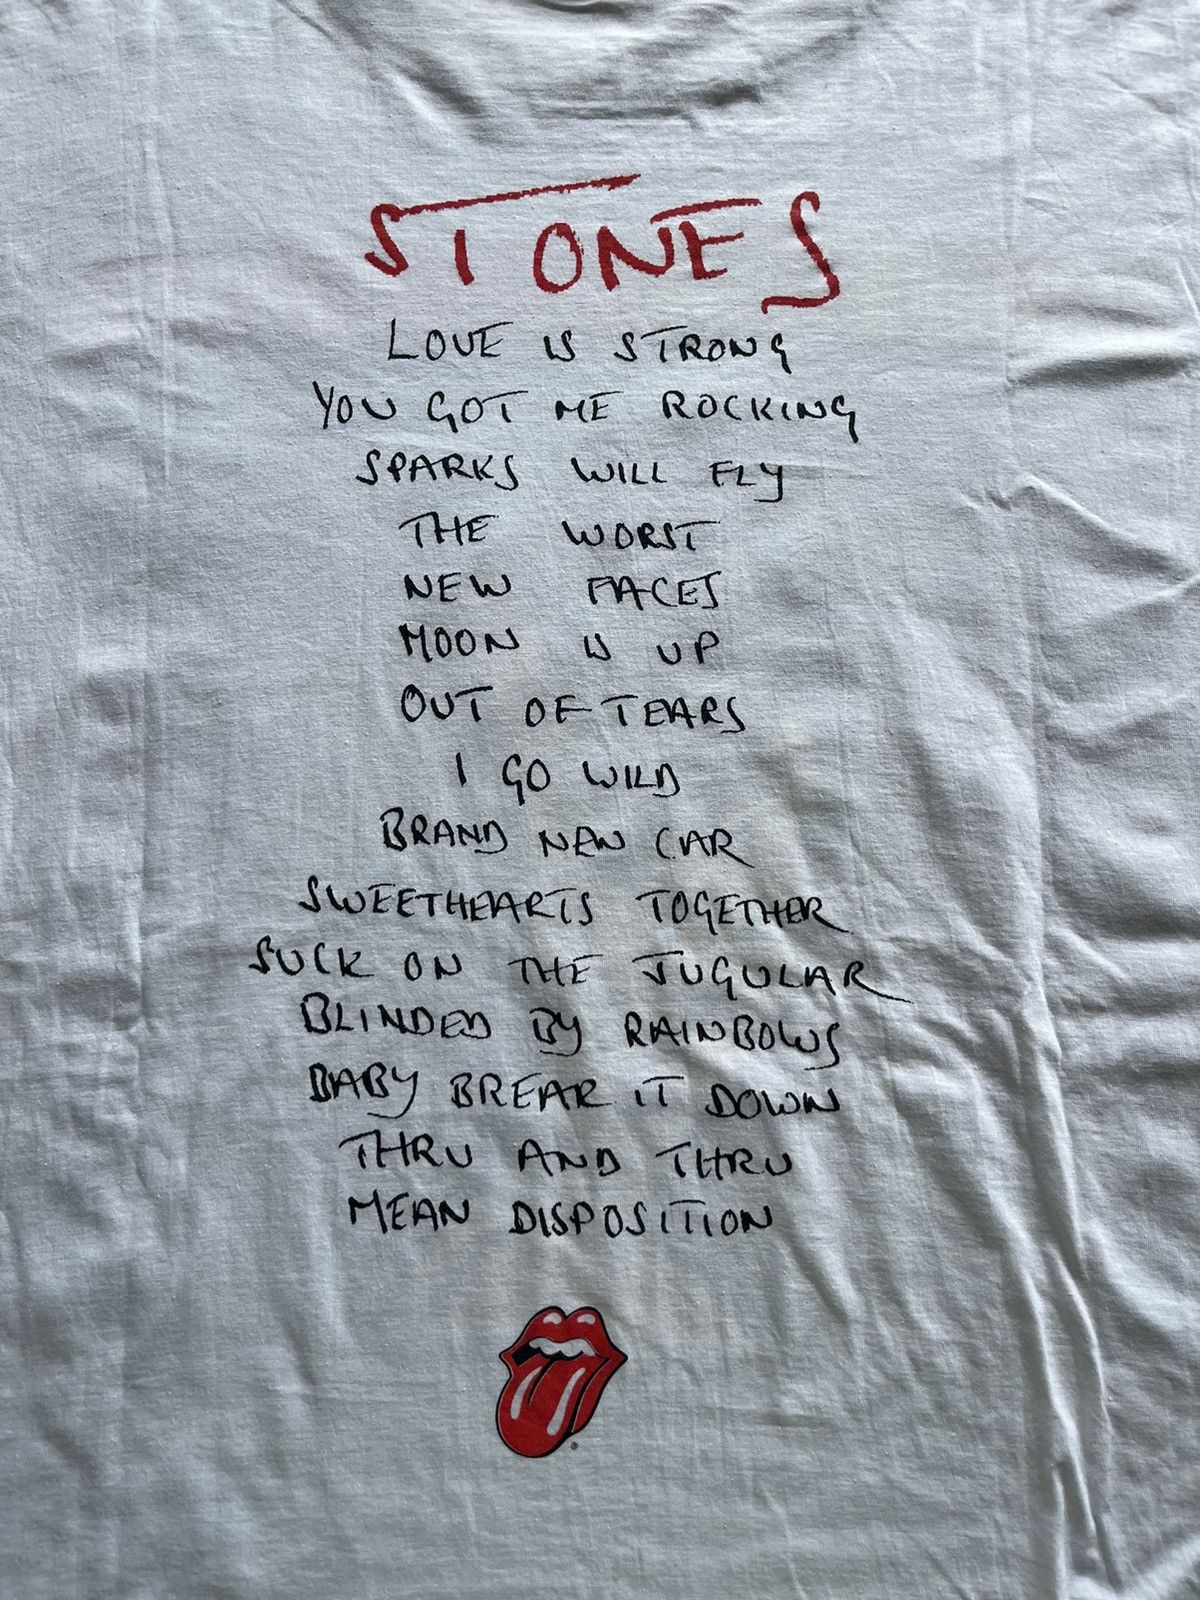 STONES
LOVE IS STRONG
YOU GOT ME ROCKING
SPARKS WILL FLY
THE WORST
NEW FACES
MOON IS UP
OUT OF TEARS
I GO WILD
BRAND NEW CAR
SWEETHEARTS TOGETHER
SUCK ON THE JUGULAR
BLINDED BY RAINBOWS
BABY BREAK IT DOWN
THRU AND THRU
MEAN DISPOSITION
®